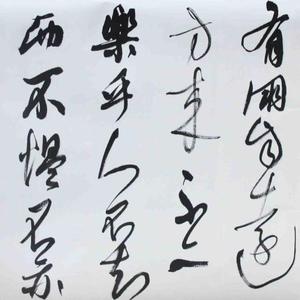 有朋自遠
方来不亦
樂乎人不知
而不愠不亦